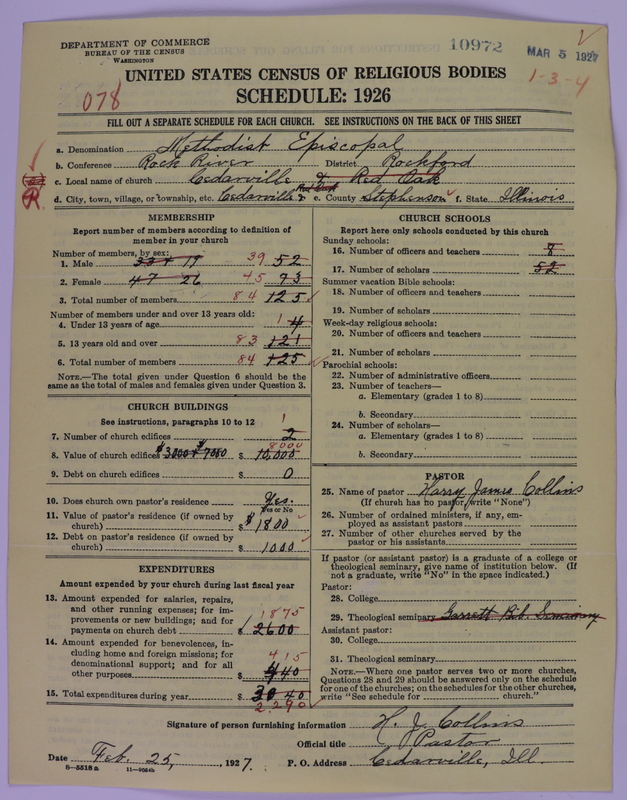 DEPARTMENT OF COMMERCE
BUREAU OF THE CENSUS
WASHINGTON
10972
MAR 5 1927
UNITED STATES CENSUS OF RELIGIOUS BODIES
1-3-4
078
SCHEDULE: 1926
FILL OUT A SEPARATE SCHEDULE FOR EACH CHURCH. SEE INSTRUCTIONS ON THE BACK OF THIS SHEET
a. Denomination Methodist Episcopal
b. Conference Rock River District Rockford
c. Local name of church Cedarville & Red Oak
R.
d. City, town, village, or township, etc. Cedarville & Red Oak e. County Stephenson f. State Illinois
MEMBERSHIP
Report number of members according to definition of
member in your church
Number of members, by sex:
1. Male 33 + 19 39 52
2. Female 47 26 45 73
3. Total number of members 84 125
Number of members under and over 13 years old:
4. Under 13 years of age 1 4
5. 13 years old and over 83 121
6. Total number of members 84 125
NOTE.—The total given under Question 6 should be
the same as the total of males and females given under Question 3.
CHURCH BUILDINGS
See instructions, paragraphs 10 to 12
1
7. Number of church edifices 2
8000
8. Value of church edifices $3000 + $7000 $ 10,000
9. Debt on church edifices $ 0
10. Does church own pastor's residence Yes.
Yes or No
11. Value of pastor's residence (if owned by
church) $ 1800
12. Debt on pastor's residence (if owned by
church) $ 1000
EXPENDITURES
Amount expended by your church during last fiscal year
13. Amount expended for salaries, repairs,
and other running expenses; for im-
provements or new buildings; and for
1875
payments on church debt $ 2600
14. Amount expended for benevolences, in-
cluding home and foreign missions; for
denominational support; and for all
415
other purposes $ 440
15. Total expenditures during year $ 3040
2,290
CHURCH SCHOOLS
Report here only schools conducted by this church
Sunday schools:
16. Number of officers and teachers 8
17. Number of scholars 52
Summer vacation Bible schools:
18. Number of officers and teachers
19. Number of scholars
Week-day religious schools:
20. Number of officers and teachers
21. Number of scholars
Parochial schools:
22. Number of administrative officers
23. Number of teachers—
a. Elementary (grades 1 to 8)
b. Secondary
24. Number of scholars—
a. Elementary (grades 1 to 8)
b. Secondary
PASTOR
25. Name of pastor Harry James Collins
(If church has no pastor, write "None")
26. Number of ordained ministers, if any, em-
ployed as assistant pastors
27. Number of other churches served by the
pastor or his assistants
If pastor (or assistant pastor) is a graduate of a college or
theological seminary, give name of institution below. (If
not a graduate, write "No" in the space indicated.)
Pastor:
28. College
29. Theological seminary Garrett Bib. Seminary
Assistant pastor:
30. College
31. Theological seminary
NOTE.—Where one pastor serves two or more churches,
Questions 28 and 29 should be answered only on the schedule
for one of the churches; on the schedules for the other churches,
write "See schedule for church."
Signature of person furnishing information H. J. Collins
Official title Pastor
Date Feb. 25, , 1927. P. O. Address Cedarville, Ill.